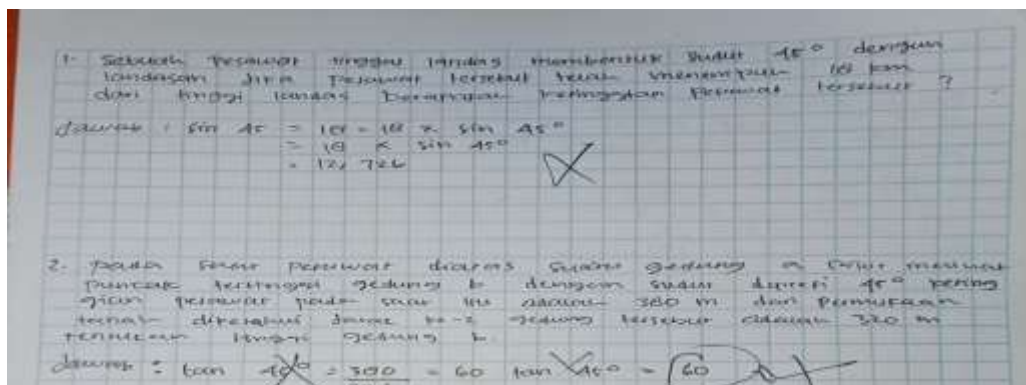 1. Sebuah Pesawat tinggal landas membentuk sudut 45° dengan
landasan Jika Pesawat tersebut telah menempuh 18 km
dari tinggi landas berapakah ketinggian Pesawat tersebut ?
Jawab : sin 45 = 18 = 18 x sin 45°
= 18 x sin 45°
= 12,726
2. pada Pesawat diatas Suatu gedung a melihat
puncak tertinggi gedung b dengan sudut 45°
pesawat pada saat itu adalah 380 m dan Permukaan
tanah diketahui Jarak ke-2 gedung tersebut adalah 320 m
tentukan tinggi gedung b.
Jawab : tan 45° = = 60 tan 45° = 60